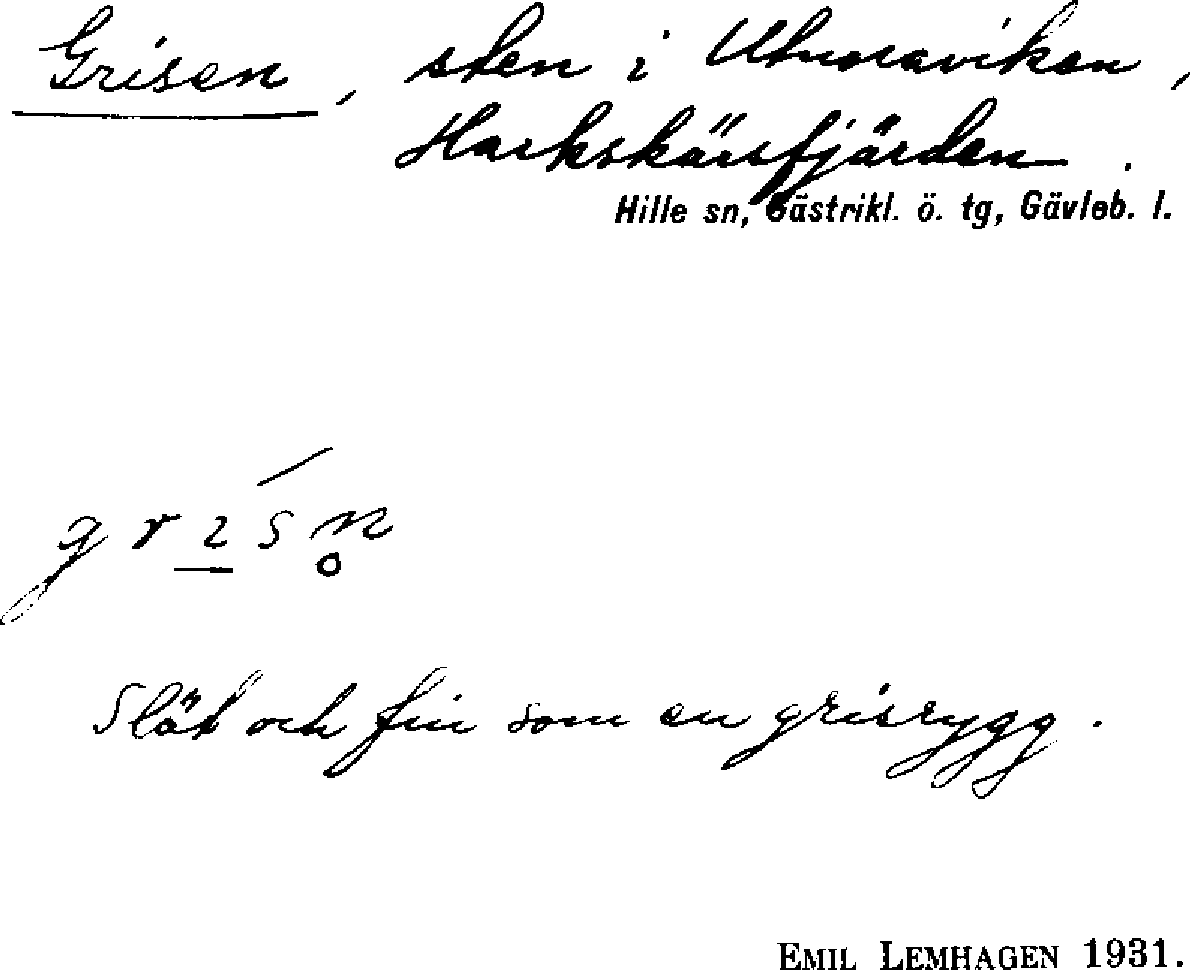 Grisen, sten i Utnoraviken,
Harkskärsfjärden.
Hille sn, Gästrikl. ö. tg, Gävleb. l.
grı́sn̥
Slät och fin som en grisrygg.
EMIL LEMHAGEN 1931.